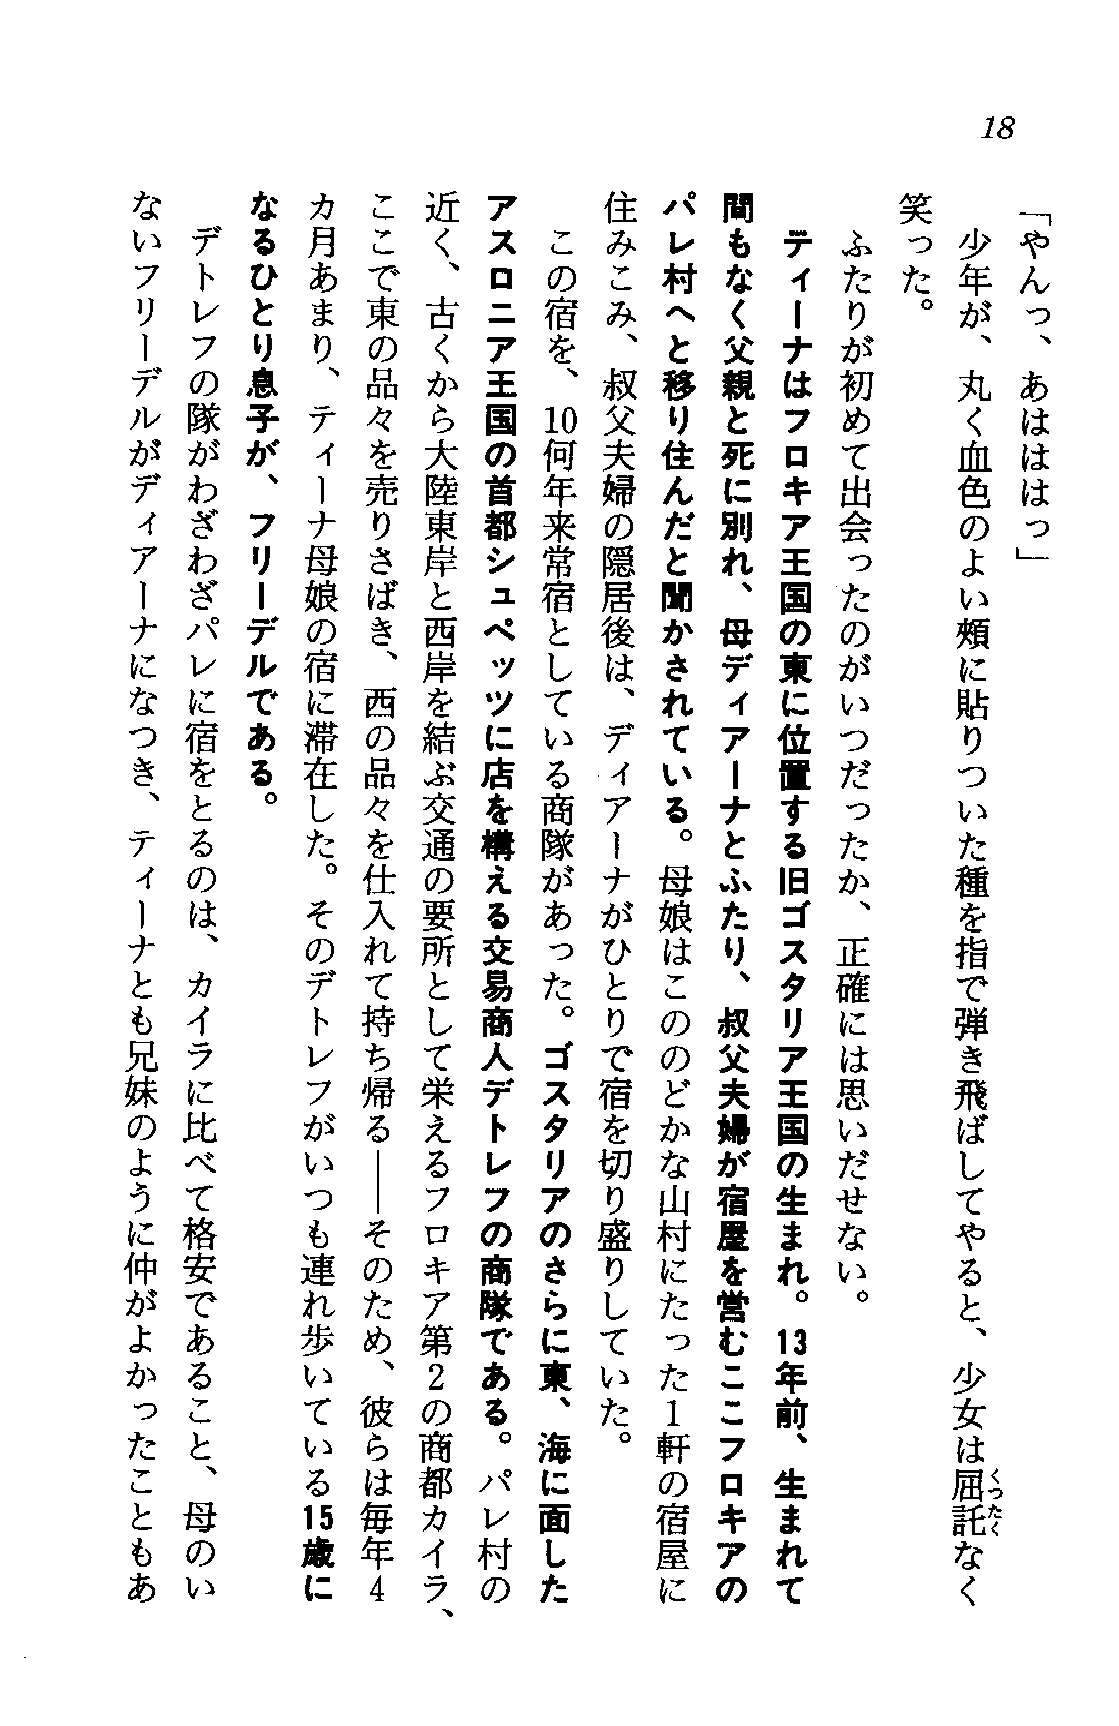 18
「やんっ、あはははっ」
少年が、丸く血色のよい頬に貼りついた種を指で弾き飛ばしてやると、少女は屈託なく
笑った。
ふたりが初めて出会ったのがいつだったか、正確には思いだせない。
ティーナはフロキア王国の東に位置する旧ゴスタリア王国の生まれ。13年前、生まれて
間もなく父親と死に別れ、母ディアーナとふたり、叔父夫婦が宿屋を営むここフロキアの
パレ村へと移り住んだと聞かされている。母娘はこののどかな山村にたった1軒の宿屋に
住みこみ、叔父夫婦の隠居後は、ディアーナがひとりで宿を切り盛りしていた。
この宿を、10何年来常宿としている商隊があった。ゴスタリアのさらに東、海に面した
アスロニア王国の首都シュペッツに店を構える交易商人デトレフの商隊である。パレ村の
近く、古くから大陸東岸と西岸を結ぶ交通の要所として栄えるフロキア第2の商都カイラ、
ここで東の品々を売りさばき、西の品々を仕入れて持ち帰る――そのため、彼らは毎年4
カ月あまり、ティーナ母娘の宿に滞在した。そのデトレフがいつも連れ歩いている15歳に
なるひとり息子が、フリーデルである。
デトレフの隊がわざわざパレに宿をとるのは、カイラに比べて格安であること、母のい
ないフリーデルがディアーナになつき、ティーナとも兄妹のように仲がよかったこともあ